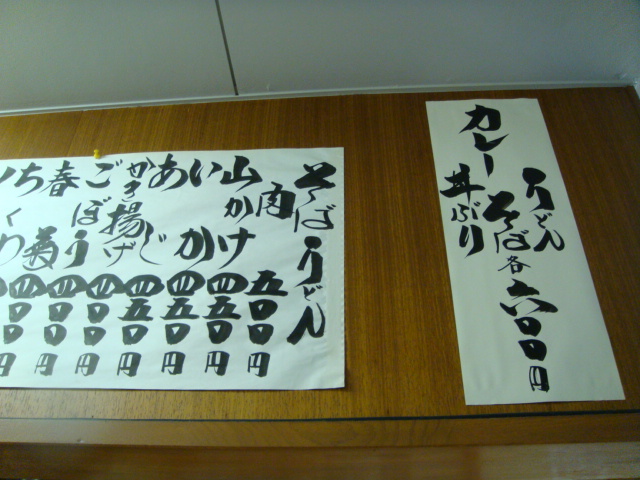 カレー
うどん
そば各六〇〇円
丼ぶり
そばうどん
肉 五〇〇円
山かけ 四五〇円
いか 四五〇円
あじ 四五〇円
かき揚げ 四〇〇円
ごぼう 四〇〇円
春菊 四〇〇円
ちくわ